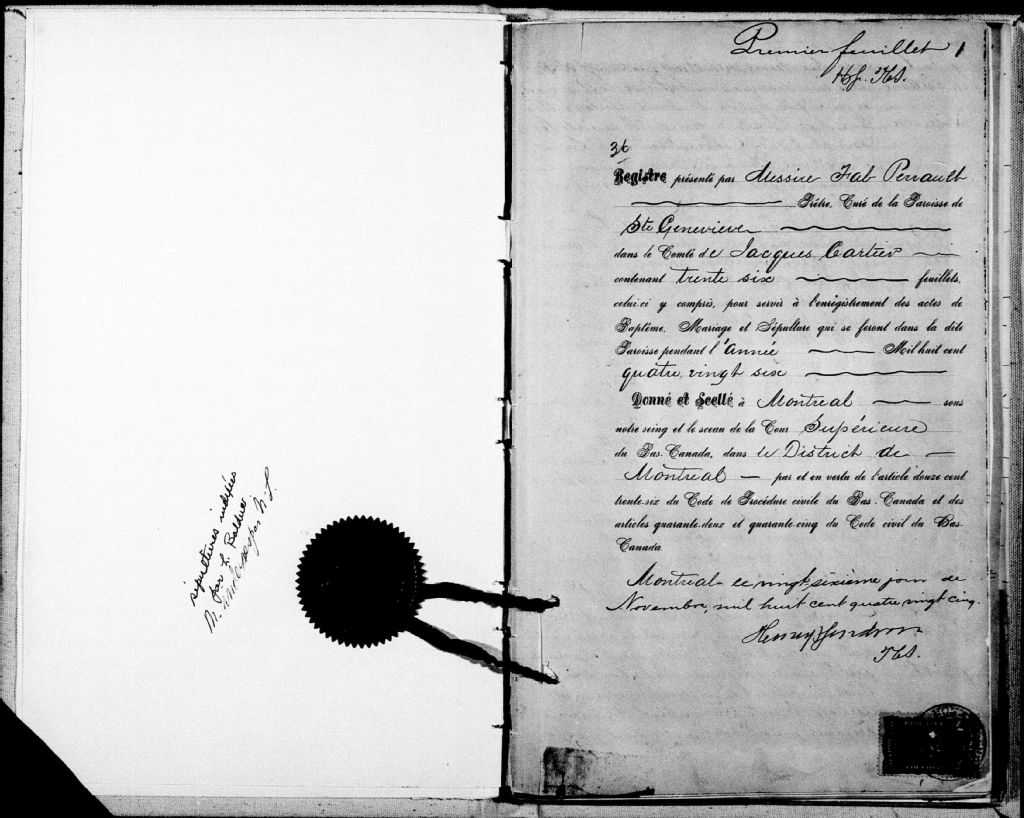 sépultures indexées
par L. Baldwin
M.
Premier feuillet 1
H.J. T.S.
36
Registre présenté par Messire Fab Perrault
Prêtre, Curé de la Paroisse de
Ste Genevieve
dans le Comté de Jacques Cartier
contenant trente six feuillets,
celui-ci y compris, pour servir à l'enrégistrement des actes de
Baptême, Mariage et Sépulture qui se feront dans la dite
Paroisse pendant l'année Mil huit cent
quatre vingt six
Donné et Scellé à Montreal sous
notre seing et le sceau de la Cour Supérieure
du Bas-Canada, dans le District de
Montreal par et en vertu de l'article douze cent
trente-six du Code de Procédure civile du Bas-Canada et des
articles quarante-deux et quarante-cinq du Code civil du Bas-
Canada
Montreal ce vingt sixième jour de
Novembre, mil huit cent quatre vingt cinq.
Henry Gendron